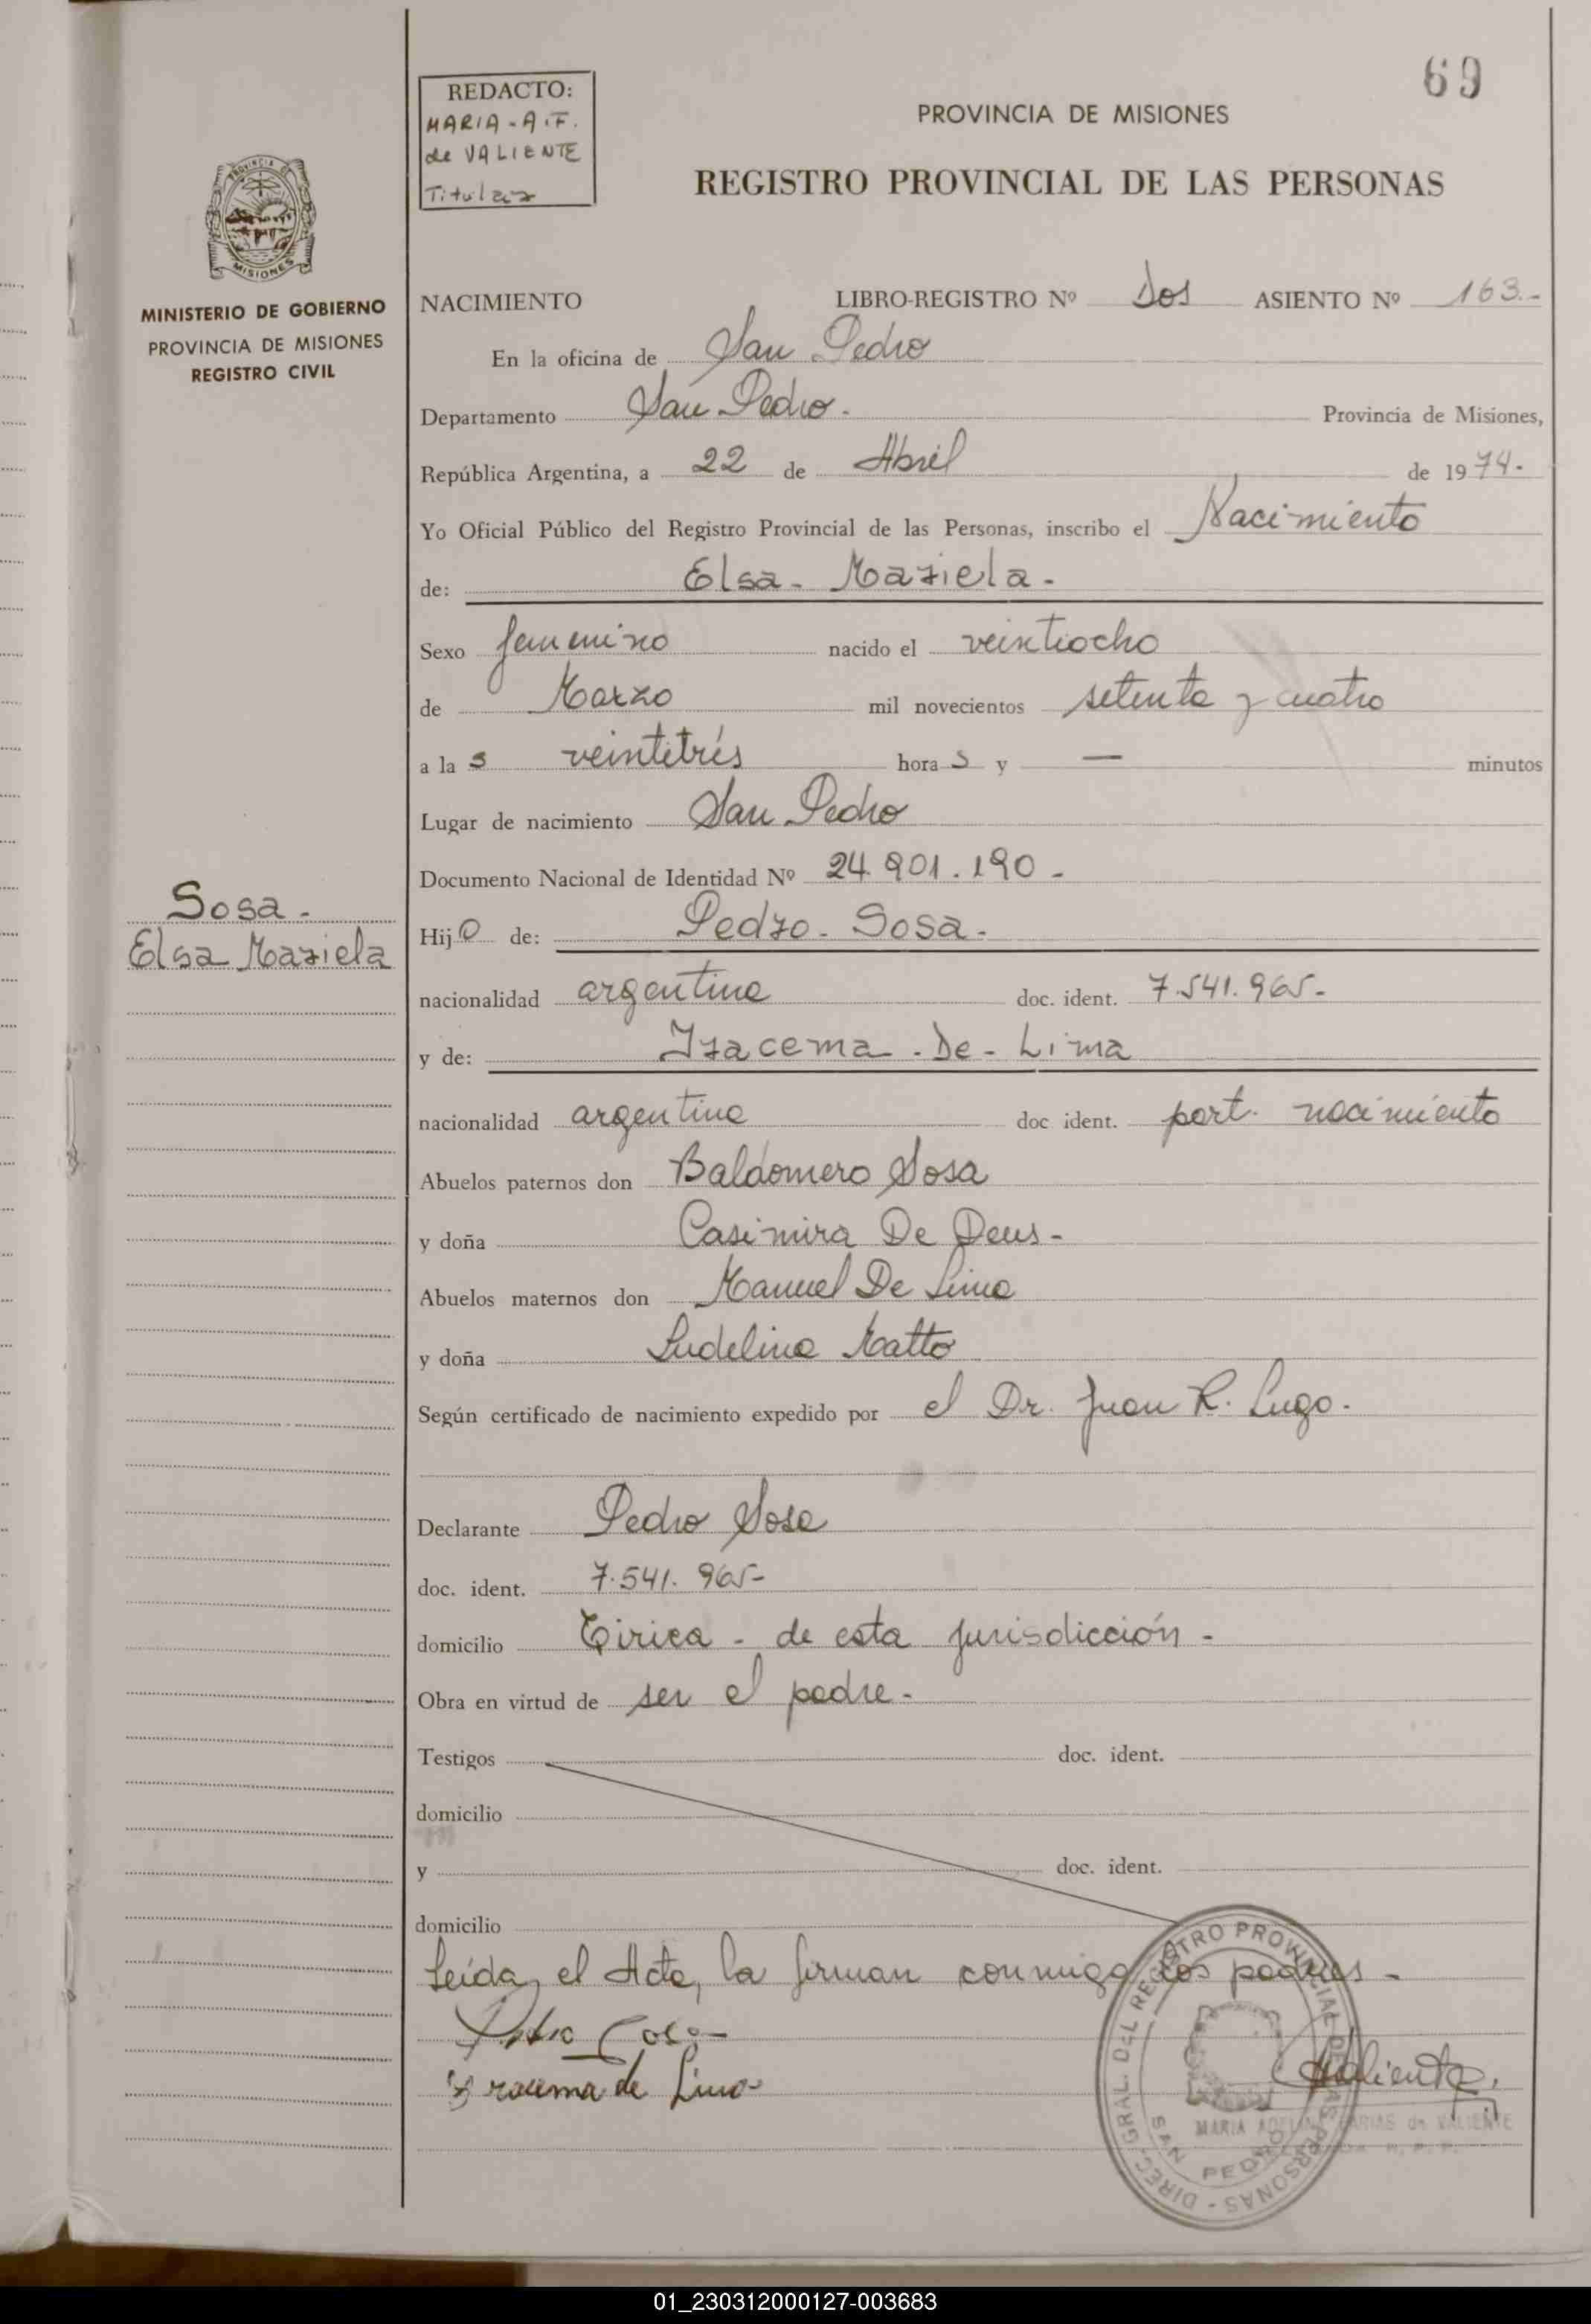 69
REDACTO:
MARIA - A.F.
de VALIENTE
Titular
PROVINCIA DE MISIONES
REGISTRO PROVINCIAL DE LAS PERSONAS
PROVINCIA DE
MISIONES
MINISTERIO DE GOBIERNO
PROVINCIA DE MISIONES
REGISTRO CIVIL
NACIMIENTO LIBRO-REGISTRO Nº Dos ASIENTO Nº 163.-
En la oficina de San Pedro
Departamento San Pedro. Provincia de Misiones,
República Argentina, a 22 de Abril de 1974.
Yo Oficial Público del Registro Provincial de las Personas, inscribo el Nacimiento
de: Elsa - Mariela -
Sexo femenino nacido el veintiocho
de Marzo mil novecientos setenta y cuatro
a la s veintitrés hora s y — minutos
Lugar de nacimiento San Pedro
Documento Nacional de Identidad Nº 24.901.190 -
Sosa -
Elsa Mariela
Hij o de: Pedro - Sosa -
nacionalidad argentina doc. ident. 7.541.965-
y de: Iracema - De - Lima
nacionalidad argentina doc ident. part. nacimiento
Abuelos paternos don Baldomero Sosa
y doña Casimira De Deus -
Abuelos maternos don Manuel De Lima
y doña Ludelina Matto
Según certificado de nacimiento expedido por el Dr. Juan R. Lugo.
Declarante Pedro Sosa
doc. ident. 7.541.965-
domicilio Tirica - de esta jurisdicción -
Obra en virtud de ser el padre -
Testigos doc. ident.
domicilio
y doc. ident.
domicilio
Leída, el Acta, la firman conmigo los padres -
Pedro Sosa
Iracema de Lima
Valiente
DIREC. GRAL. DEL REGISTRO PROVINCIAL DE LAS PERSONAS -
SAN PEDRO
MARIA ADELINA FARIAS de VALIENTE
01_230312000127-003683